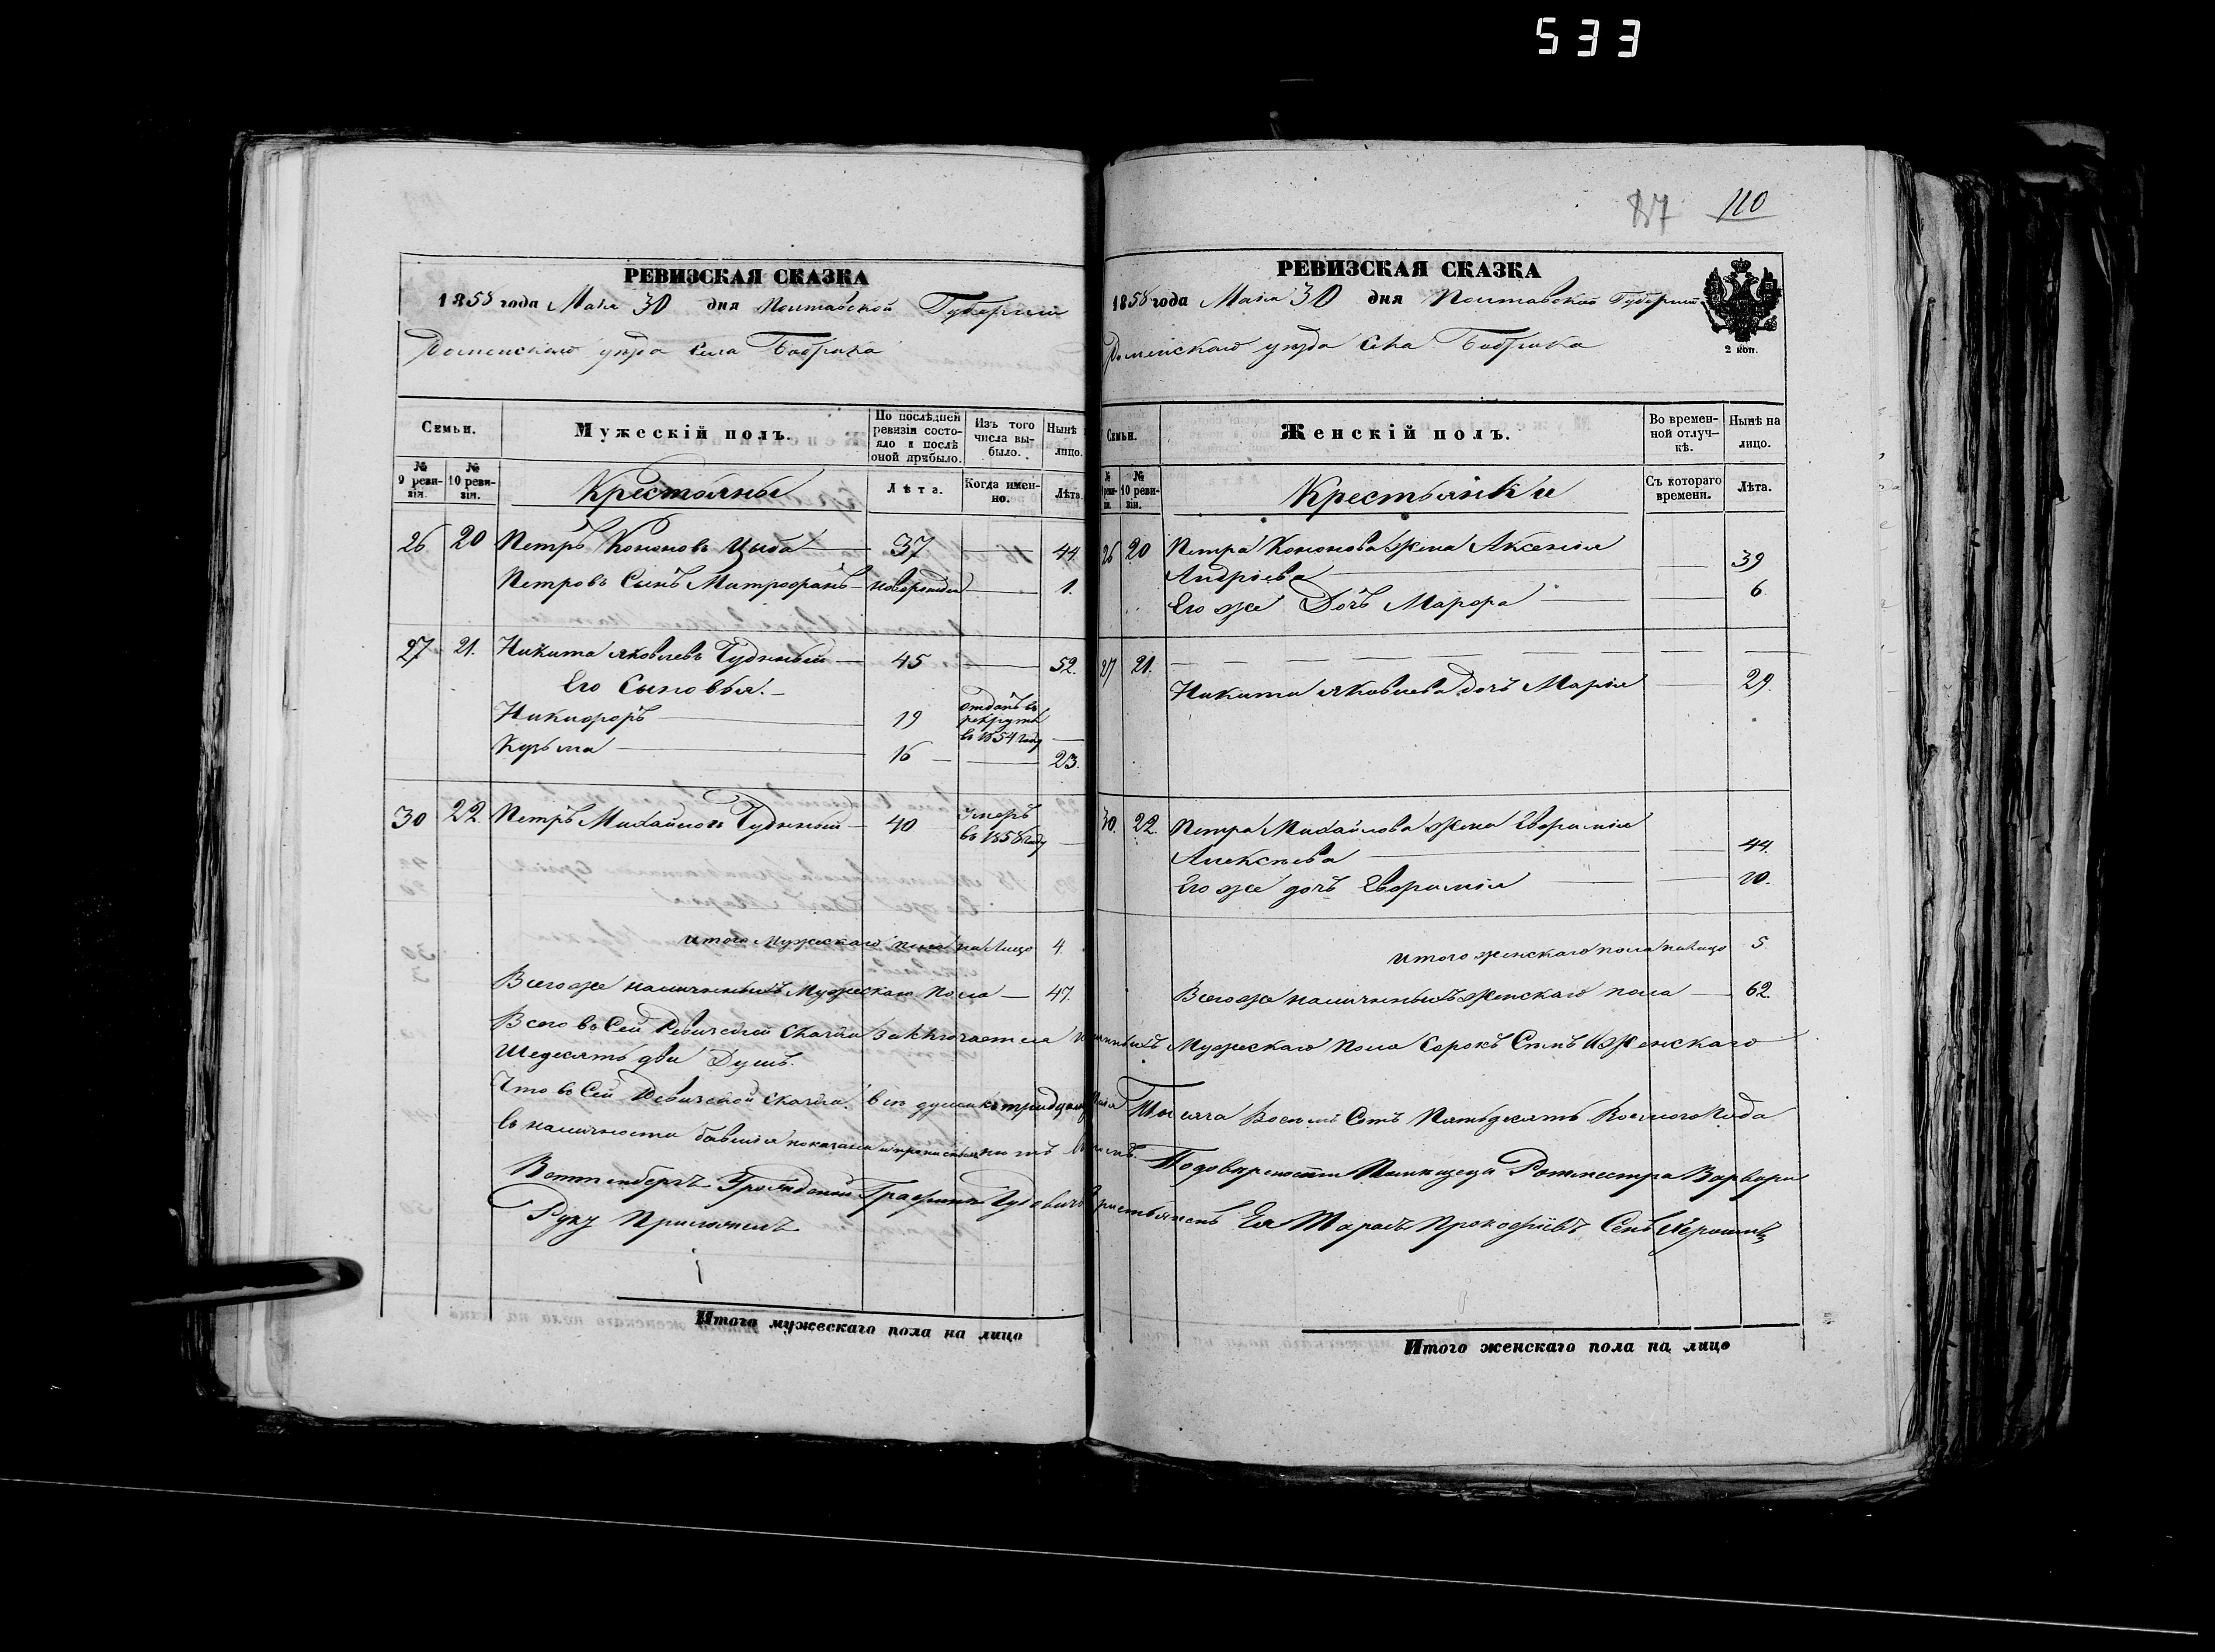 533
РЕВИЗСКАЯ СКАЗКА
1858 года Маія 30 дня Полтавской Губерніи
Роменскаго уѣзда Села Бобрика
Семьи.
Мужескій полъ.
По послѣдней ревизіи состояло и послѣ оной прибыло.
Изъ того числа выбыло.
Нынѣ на лицо.
№ 9 ревизіи.
№ 10 ревизіи.
Крестьяны
Лѣта.
Когда именно.
Лѣта.
26 20 Петръ Кононовъ Цыба 37 44
Петровъ Сынъ Митрофанъ новорожден 1.
27 21. Никита Яковлевъ Чудный 45 52.
Его Сыновья.
Никифоръ 19 отданъ въ рекруты въ 1854 году
Кузьма 16 23.
30 22. Петръ Михайловъ Чудный 40 умеръ въ 1858 году
Итого Мужескаго пола на Лицо 4.
Всего же наличныхъ Мужескаго пола 47.
87 110
РЕВИЗСКАЯ СКАЗКА
1858 года Маія 30 дня Полтавской Губерніи
2 коп.
Роменскаго уѣзда Села Бобрика
Семьи.
Женскій полъ.
Во временной отлучкѣ.
Нынѣ на лицо.
№ 9 ревизіи.
№ 10 ревизіи.
Крестьянки
Съ котораго времени.
Лѣта.
26 20 Петра Кононова Жена Аксенія
Андріева 39
Его же Дочь Марфа 6
27 21.
Никиты Яковлева дочь Марія 29.
30. 22. Петра Михайлова Жена Евфимія
Алексѣева 44.
Его же дочь Евфимія 20.
Итого женскаго пола на лицо 5
Всего же наличныхъ Женскаго пола 62.
Всего въ Сей Ревизской Сказки заключается наличныхъ Мужескаго Пола Сорокъ Семь и Женскаго
Шедесять две Душъ.
Что въ Сей Ревизской Сказки все души къ тридцатому Маія Тысяча Восемь Сотъ Пятьдесять Восмого Года
въ наличности бывшія показаны и прописныхъ нѣтъ По доверенности Помищици Ротмистра Варвары
Графини Гудовичъ Крестьянинъ Ея Тарасъ Прокофіевъ
Руку Приложилъ
Итого мужескаго пола на лицо
Итого женскаго пола на лицо